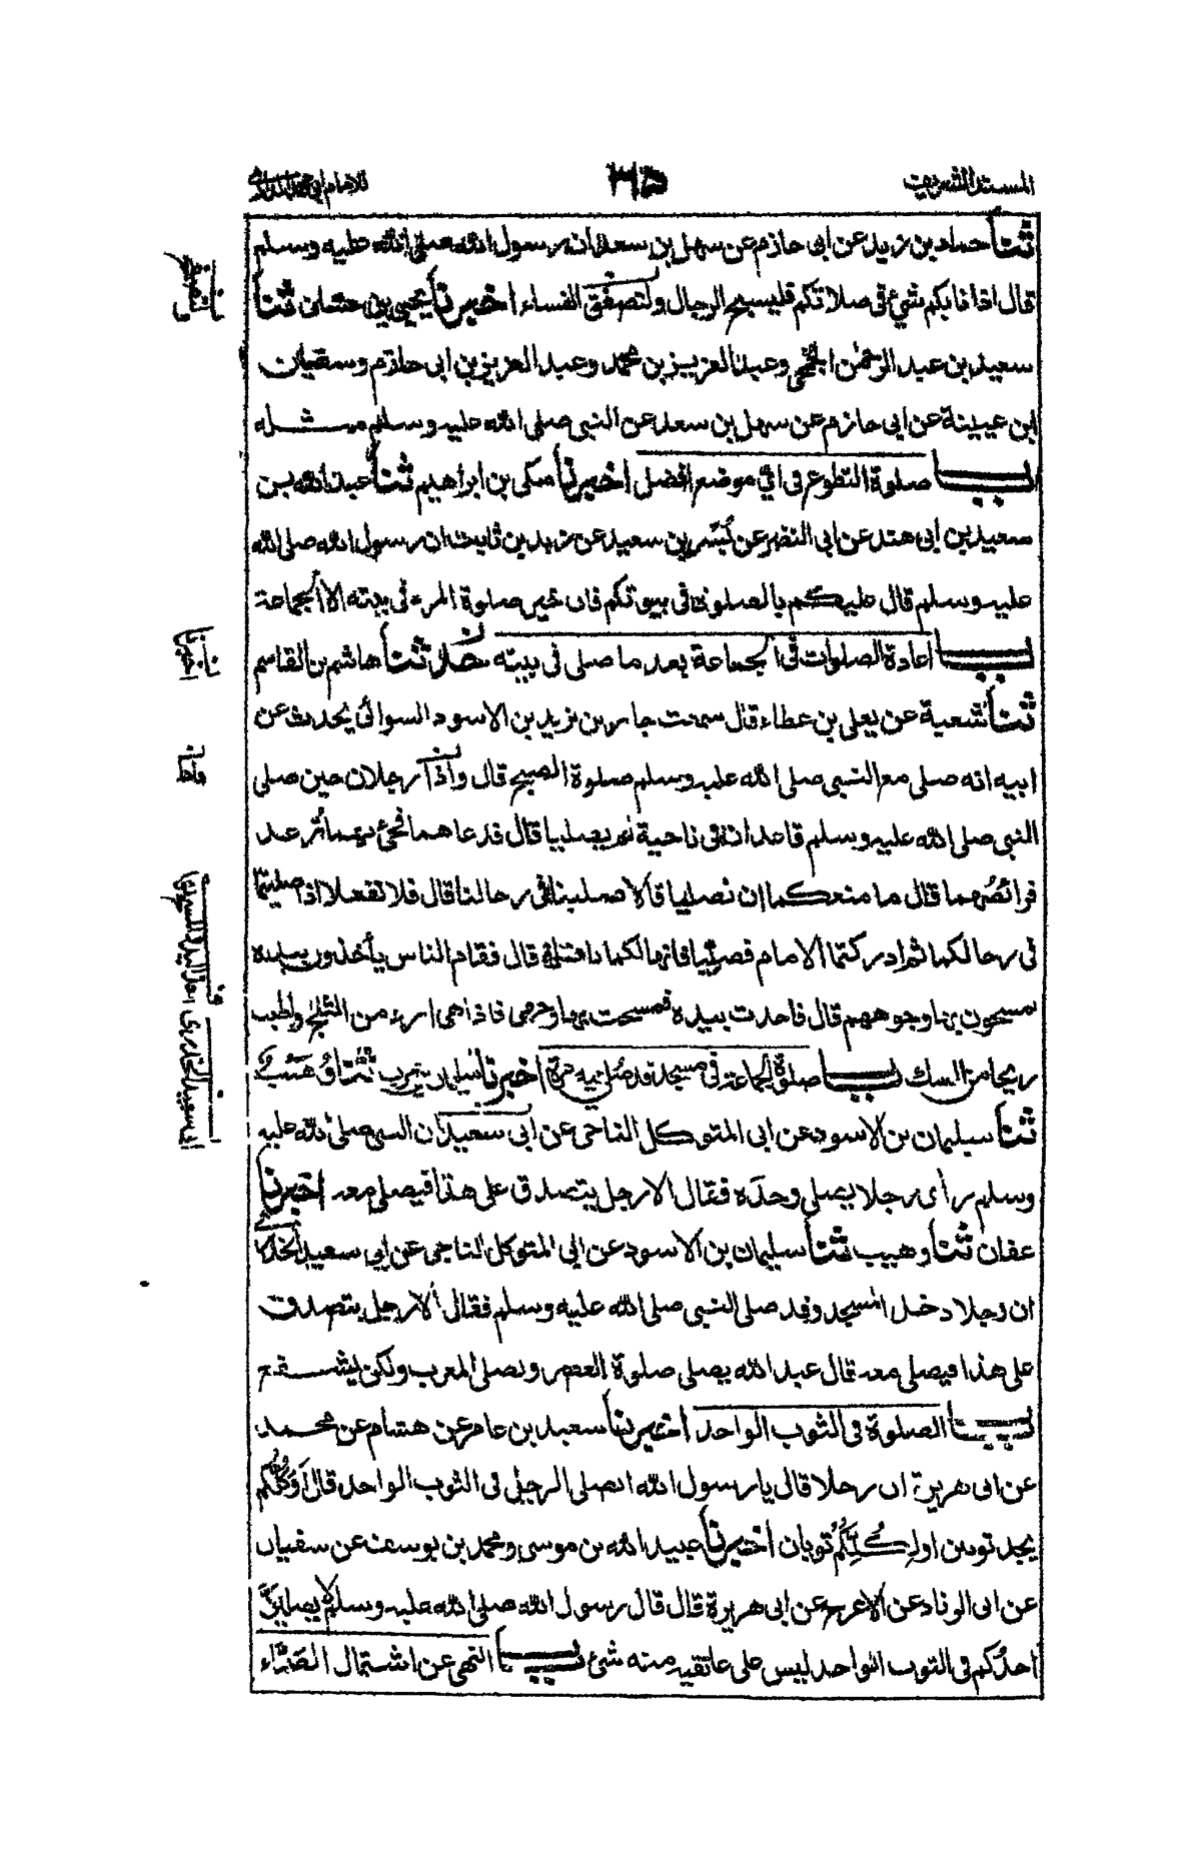 المسند الشريف
٢٦٥
للامام ابي محمد الدارمي
ثنا حماد بن زيد عن ابى حازم عن سهل بن سعد ان رسول الله صلى الله عليه وسلم
قال اذا نابكم شئ فى صلاتكم فليسبح الرجال ولتصفق النساء اخبرنا يحيى بن حسان ثنا
سعيد بن عبد الرحمن الجمحى وعبد العزيز بن محمد وعبد العزيز بن ابى حازم وسفيان
ابن عيينة عن ابى حازم عن سهل بن سعد عن النبى صلى الله عليه وسلم مثله
باب صلوة التطوع فى اي موضع افضل اخبرنا مكى بن ابراهيم ثنا عبد الله بن
سعيد بن ابى هند عن ابى النضر عن بُسر بن سعيد عن زيد بن ثابت ان رسول الله صلى الله
عليه وسلم قال عليكم بالصلوة فى بيوتكم فان خير صلوة المرء فى بيته الا الجماعة
باب اعادة الصلوات فى الجماعة بعد ما صلى فى بيته حدثنا هاشم بن القاسم
ثنا شعبة عن يعلى بن عطاء قال سمعت جابر بن يزيد بن الاسود السوائي يحدث عن
ابيه انه صلى مع النبى صلى الله عليه وسلم صلوة الصبح قال واذا رجلان حين صلى
النبى صلى الله عليه وسلم قاعدان فى ناحية لم يصليا قال فدعاهما فجئ بهما ترعد
فرائصُهما قال ما منعكما ان تصليا قالا صلينا فى رحالنا قال فلا تفعلا اذا صليتما
فى رحالكما ثم ادركتما الامام فصليا فانها لكما نافلة قال فقام الناس يأخذون بيده
يمسحون بها وجوههم قال فاخذت بيده فمسحت بها وجهى فاذا هى ابرد من الثلج واطيب
ريحا من المسك باب صلوة الجماعة فى مسجد قد صلى فيه مرة اخبرنا سليمان بن حرب ثنا وُهَيْب
ثنا سليمان بن الاسود عن ابى المتوكل الناجى عن ابى سعيد ان النبى صلى الله عليه
وسلم رأى رجلا يصلى وحده فقال الا رجل يتصدق على هذا فيصلى معه اخبرنا
عفان ثنا وهيب ثنا سليمان بن الاسود عن ابى المتوكل الناجى عن ابى سعيد الخدرى
ان رجلا دخل المسجد وقد صلى النبى صلى الله عليه وسلم فقال ألا رجل يتصدق
على هذا فيصلى معه قال عبد الله يصلى صلوة العصر ويصلى المغرب ولكن يشفع
باب الصلوة فى الثوب الواحد اخبرنا سعيد بن عامر عن هشام عن محمد
عن ابى هريرة ان رجلا قال يا رسول الله ايصلى الرجل فى الثوب الواحد قال أوكلكم
يجد ثوبين اولكلكم ثوبان اخبرنا عبيد الله بن موسى ومحمد بن يوسف عن سفيان
عن ابى الزناد عن الاعرج عن ابى هريرة قال قال رسول الله صلى الله عليه وسلم لا يصلينَّ
احدُكم فى الثوب الواحد ليس على عاتقيه منه شئ باب النهى عن اشتمال الصَّمَّاء